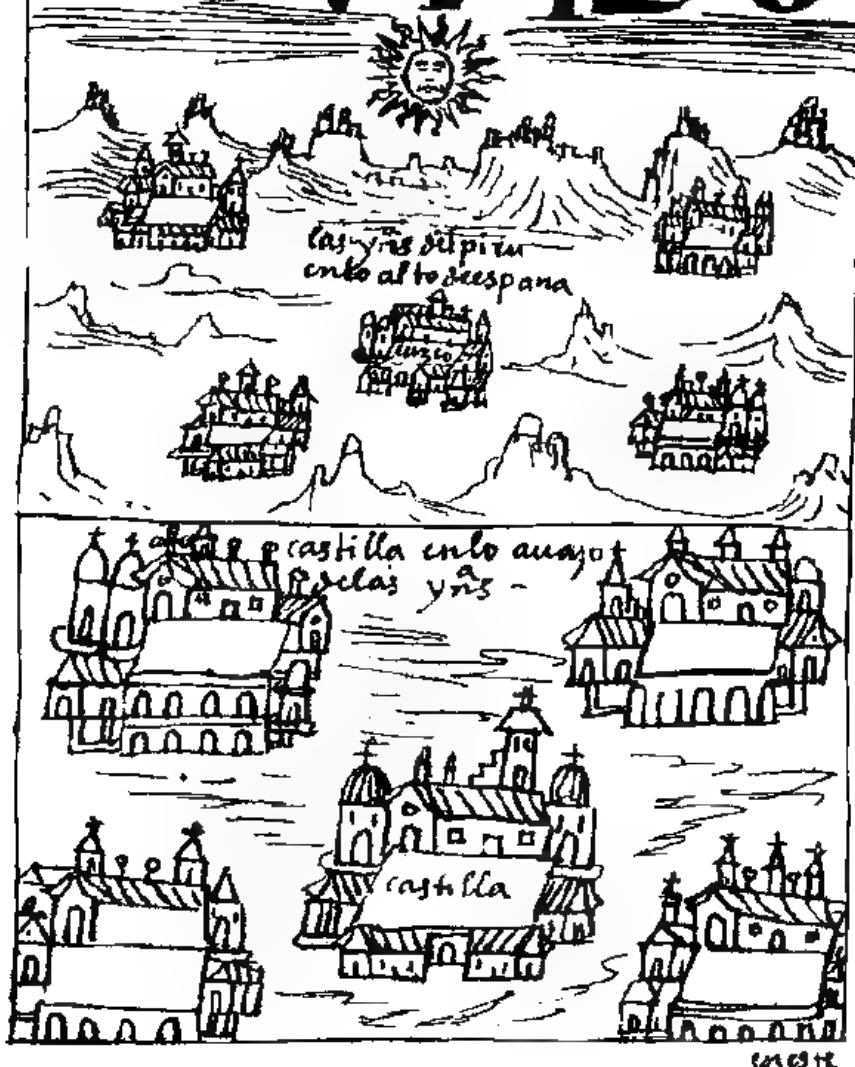 las yñs del piru
enlo alto deespana
cuzco
castilla enlo auajo
delas yñas -
castilla
eneste